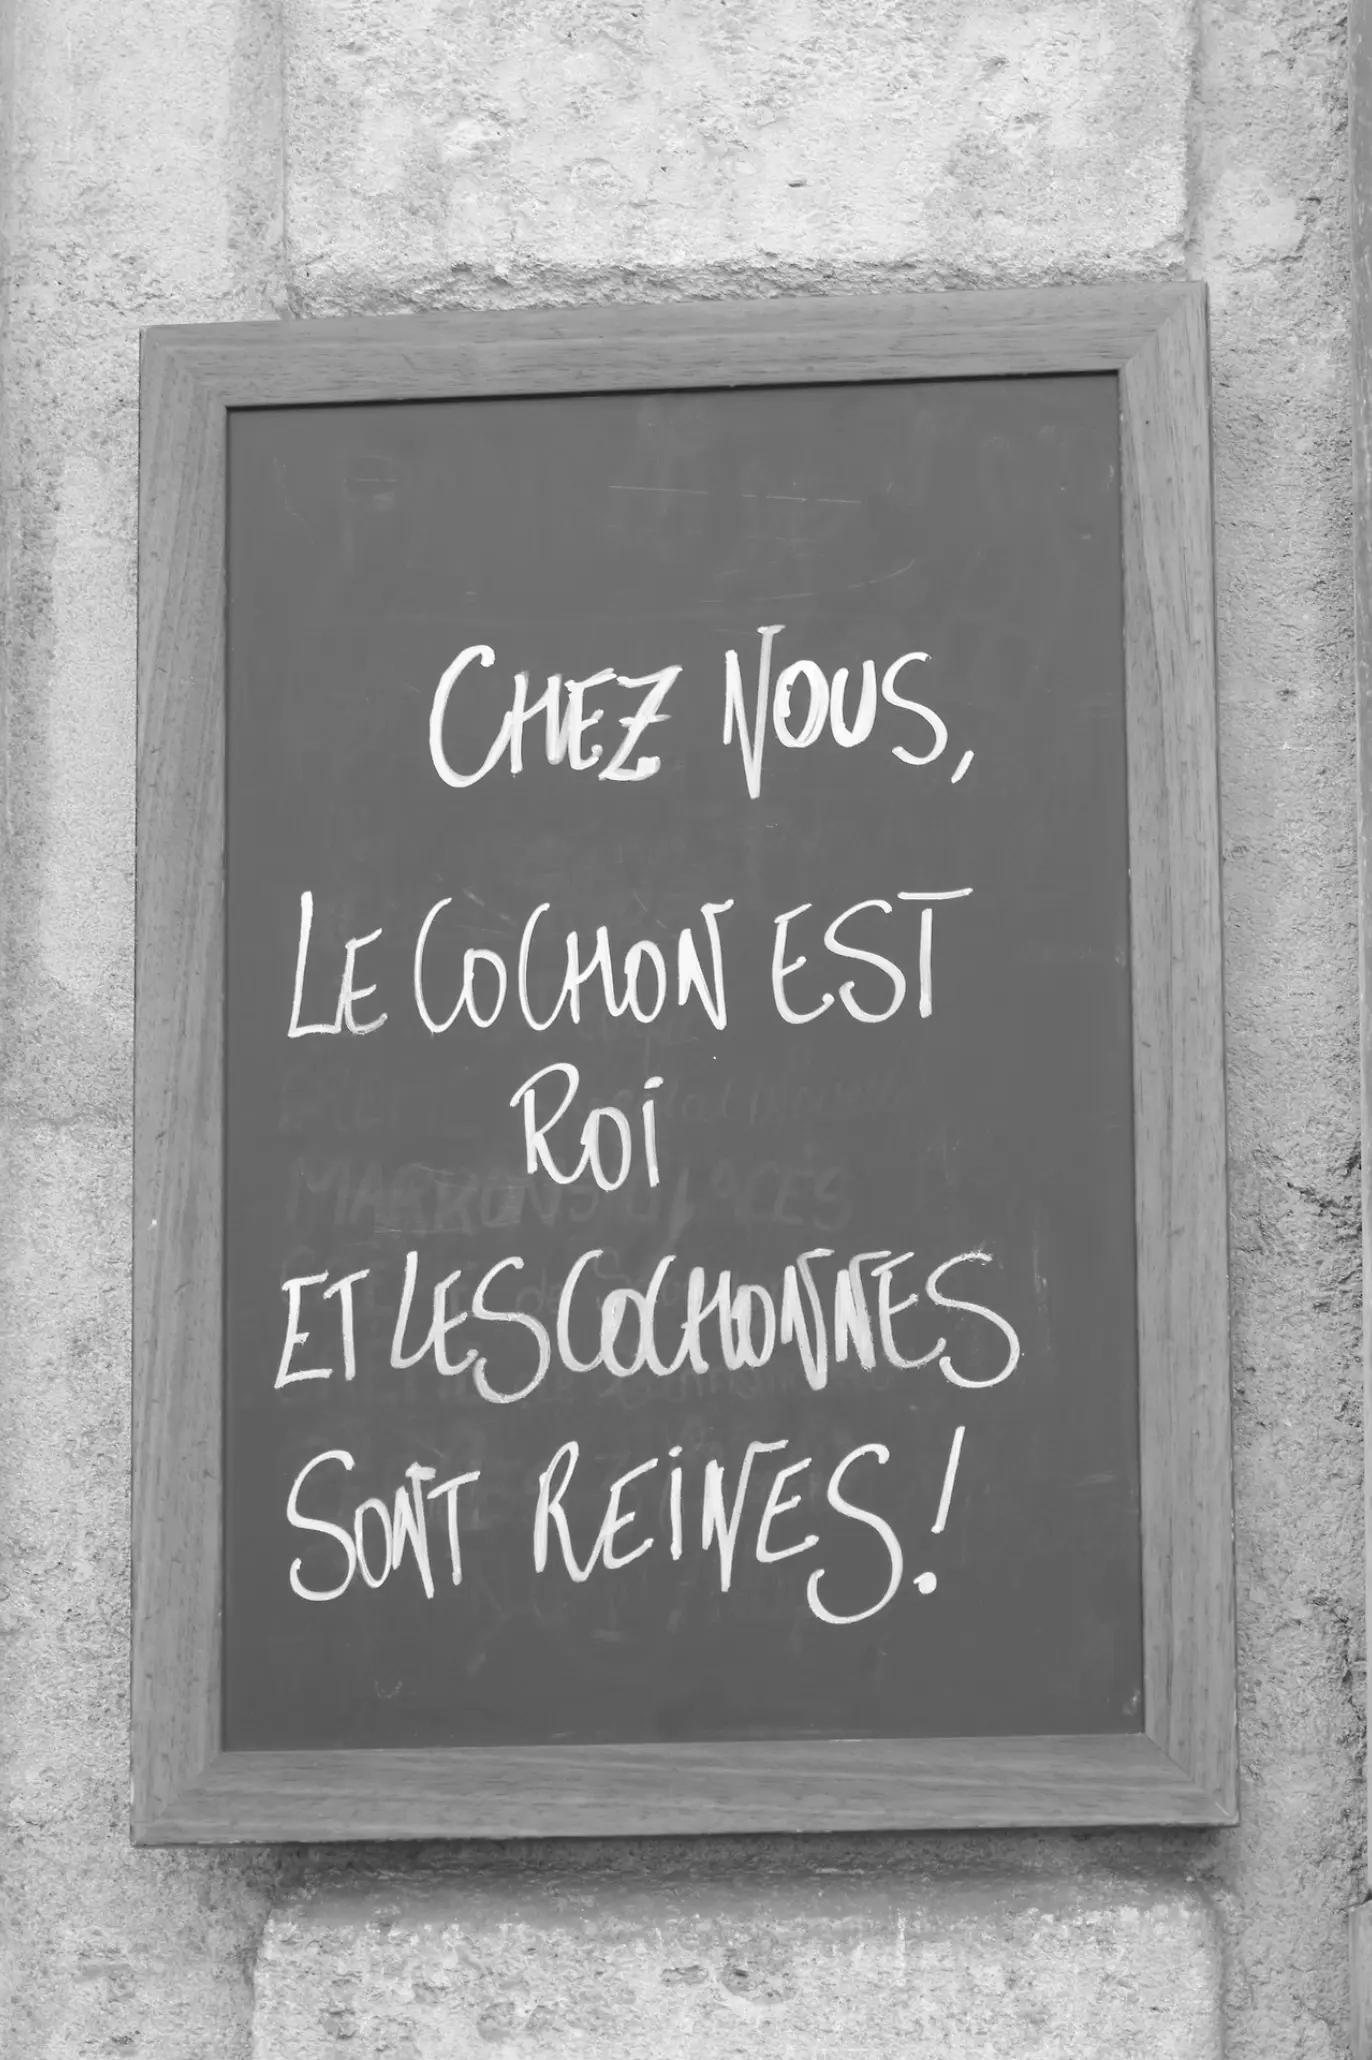 CHEZ NOUS,
LE COCHON EST
ROI
ET LES COCHONNES
SONT REINES!